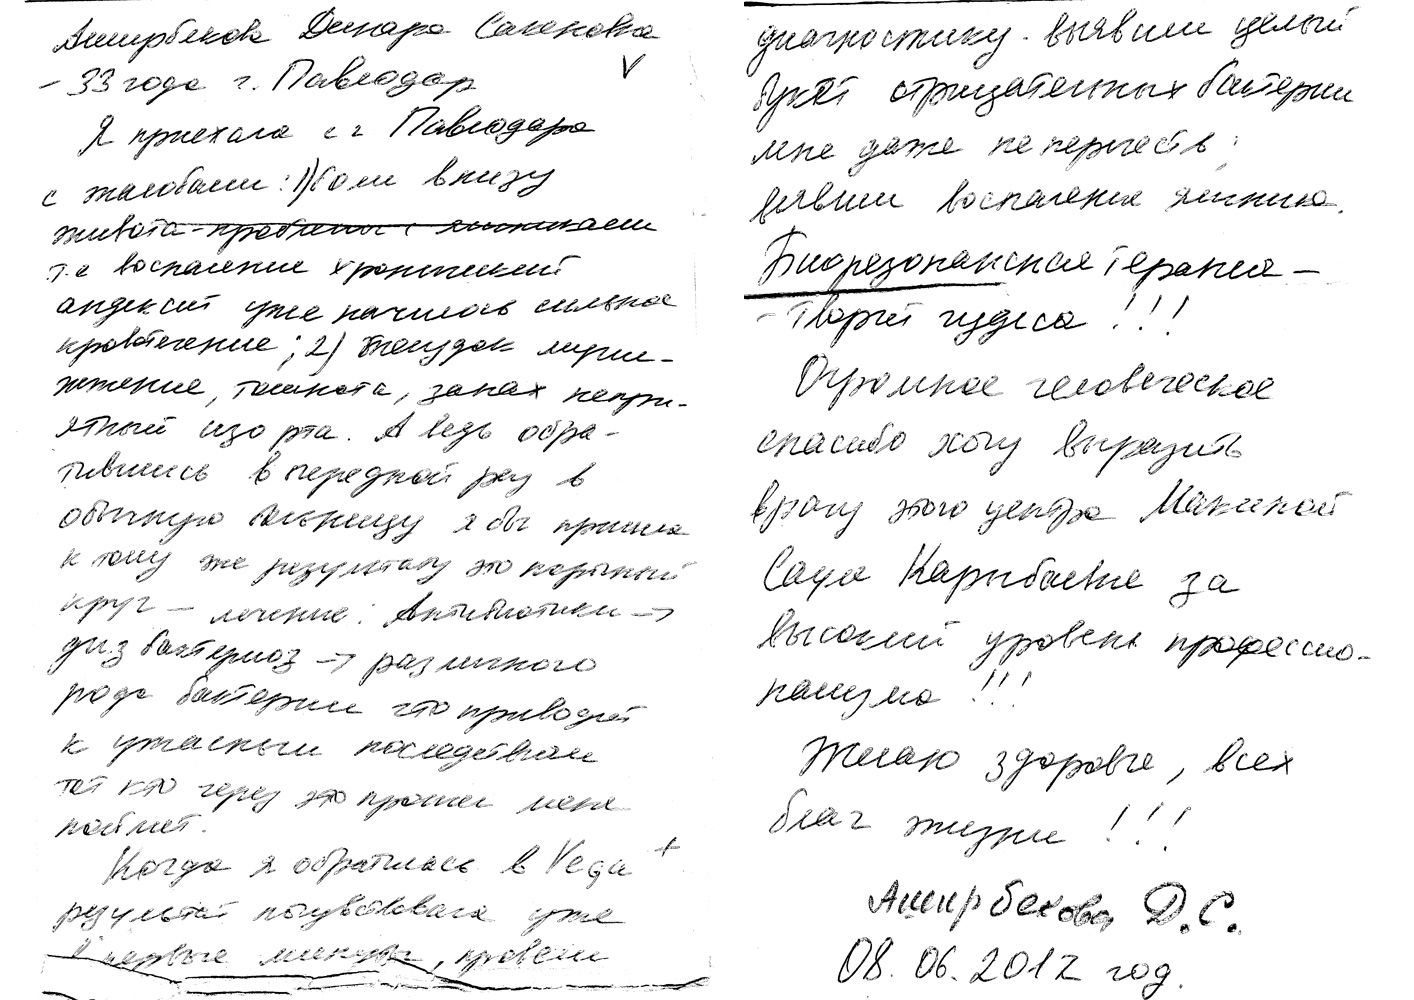 Аширбекова Динара Сакеновна
- 33 года г. Павлодар
Я приехала с г Павлодара
с жалобами: 1) боли внизу
живота проблемы с яичниками
т.е воспаление хронический
андексит уже началось сильное
кровотечение; 2) Желудок
жжение, тошнота, запах непри-
ятный изо рта. А ведь обра-
тившись в очередной раз в
обычную больницу я бы пришла
к тому же результату это порочный
круг – лечение: Антибиотики →
дизбактериоз → различного
рода бактерии что приводит
к ужасным последствиям
тот кто через это прошел меня
поймет.
Когда я обратилась в Veda +
результат почувствовала уже
в первые минуты, провели
диагностику. выявили целый
букет отрицательных бактерии
мне даже не перечесть;
выявили воспаление яичника.
Биорезонансная терапия –
- Творит чудеса!!!
Огромное человеческое
спасибо хочу выразить
врачу этого центра Макиной
Сауле Карибаевне за
высокий уровень профессио-
нализма!!!
Желаю здоровье, всех
благ жизни!!!
Аширбекова Д.С.
08.06.2012 год.